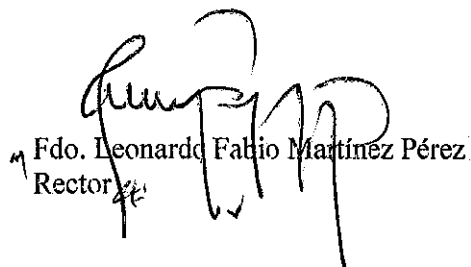 Fdo. Leonardo Fabio Martínez Pérez
Rector